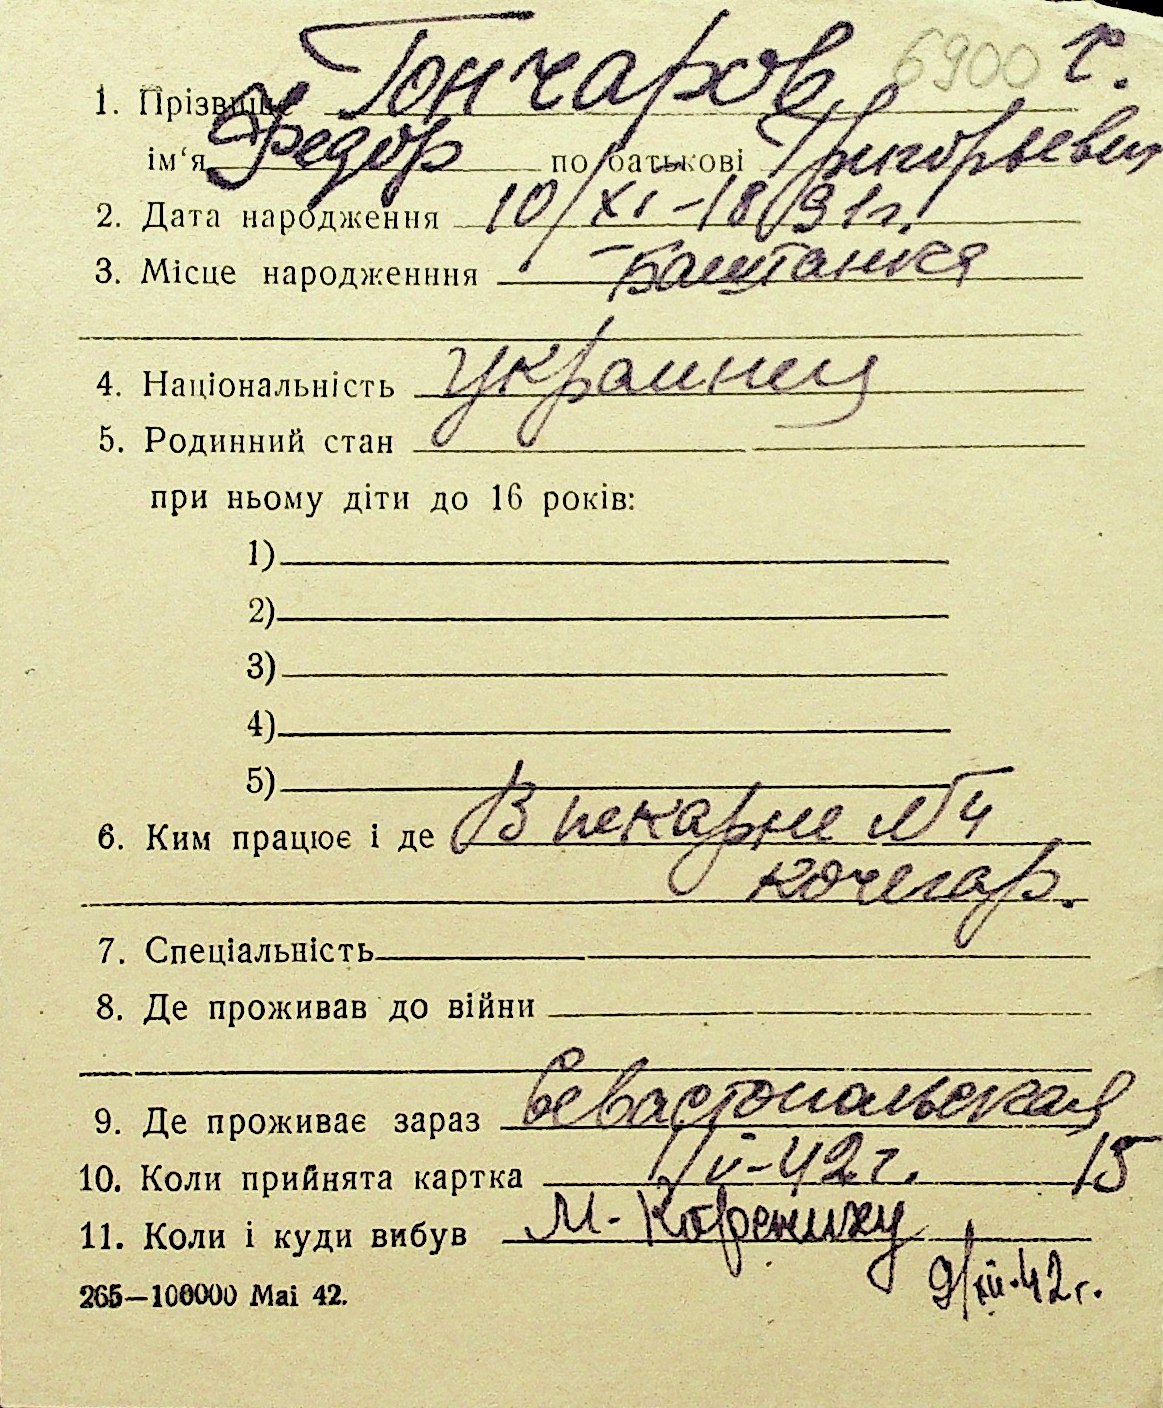 6900 г.
1. Прізвище Гончаров
ім'я Федор по батькові Григорьевич
2. Дата народження 10/XI-1891г.
3. Місце народженння Баштанка
4. Національність украинец
5. Родинний стан
при ньому діти до 16 років:
1)
2)
3)
4)
5)
6. Ким працює і де В пекарне №4
кочегар.
7. Спеціальність
8. Де проживав до війни
9. Де проживає зараз Севастопольская
10. Коли прийнята картка -42г. 15
11. Коли і куди вибув М-Корениху
265—100000 Маі 42. 9/XII-42г.